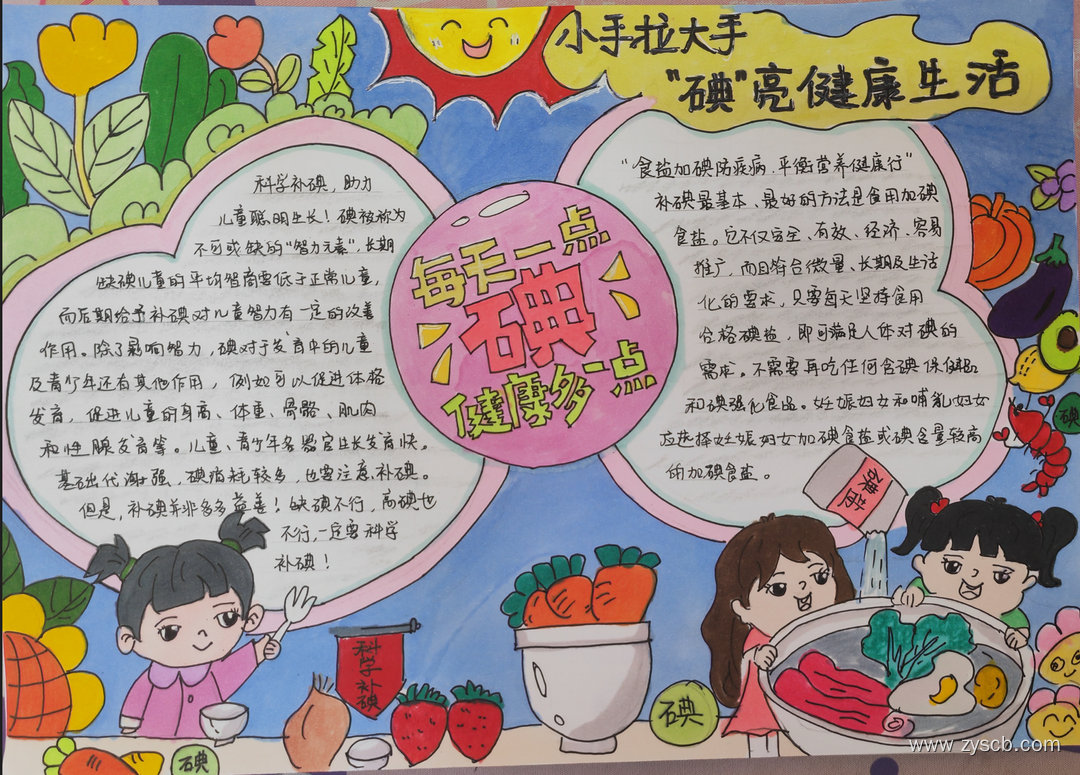 小手拉大手
"碘"亮健康生活
科学补碘，助力
儿童聪明生长！碘被称为
不可或缺的"智力元素"，长期
缺碘儿童的平均智商要低于正常儿童，
而后期给予补碘对儿童智力有一定的改善
作用。除了影响智力，碘对于发育中的儿童
及青少年还有其他作用，例如可以促进体格
发育，促进儿童的身高、体重、骨骼、肌肉
和性腺发育等。儿童、青少年各器官生长发育快。
基础代谢强，碘消耗较多，也要注意补碘。
但是，补碘并非多多益善！缺碘不行，高碘也
不行，一定要科学
补碘！
每天一点
碘
健康多一点
"食盐加碘防疾病，平衡营养健康行"
补碘最基本、最好的方法是食用加碘
食盐。它不仅安全、有效、经济、容易
推广，而且符合微量、长期及生活
化的要求，只要每天坚持食用
合格碘盐，即可满足人体对碘的
需求。不需要再吃任何含碘保健品
和碘强化食品。妊娠妇女和哺乳妇女
应选择妊娠妇女加碘食盐或碘含量较高
的加碘食盐。
碘盐
科学补碘
碘
碘
碘
www.zyscb.com